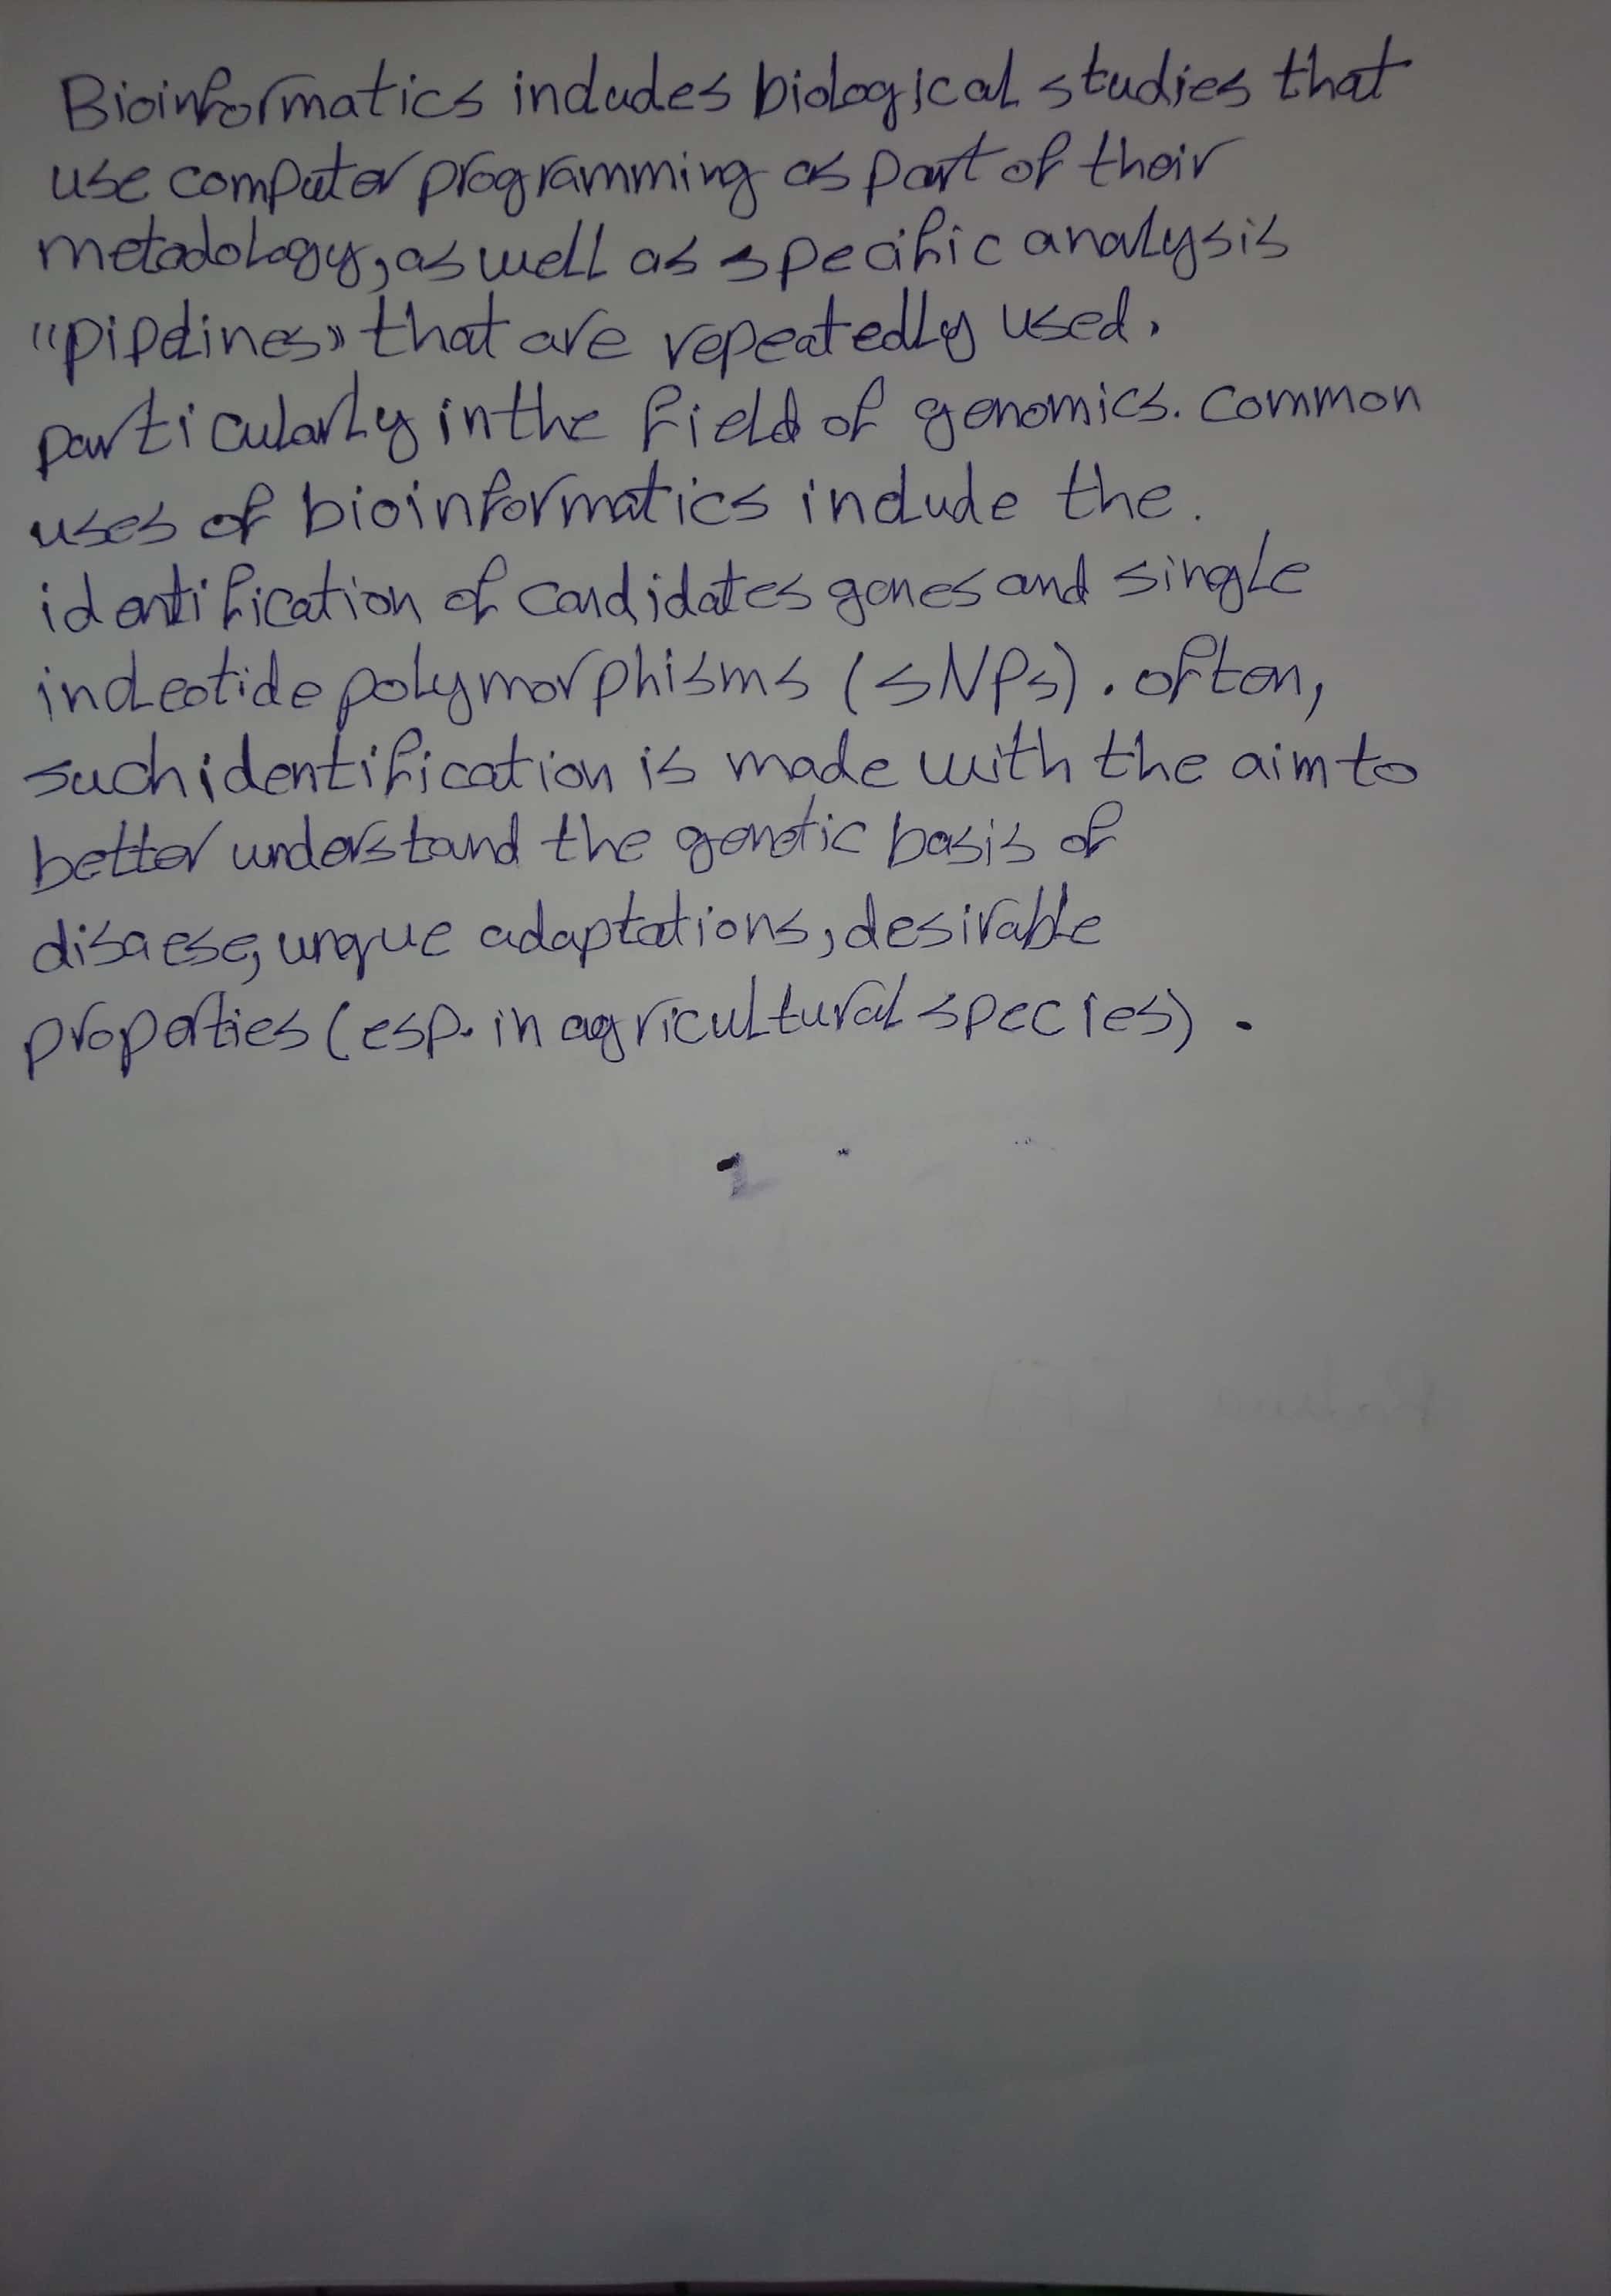 Bioinformatics includes biological studies that
use computer programming as part of their
metodology, as well as specific analysis
"pipelines" that are repeatedly used.
particularly in the field of genomics. common
uses of bioinformatics include the.
identification of candidates genes and single
incleotide polymorphisms (SNPs). often,
such identification is made with the aim to
better understand the genetic basis of
disaese, unque adaptations, desirable
properties (esp. in agricultural species).